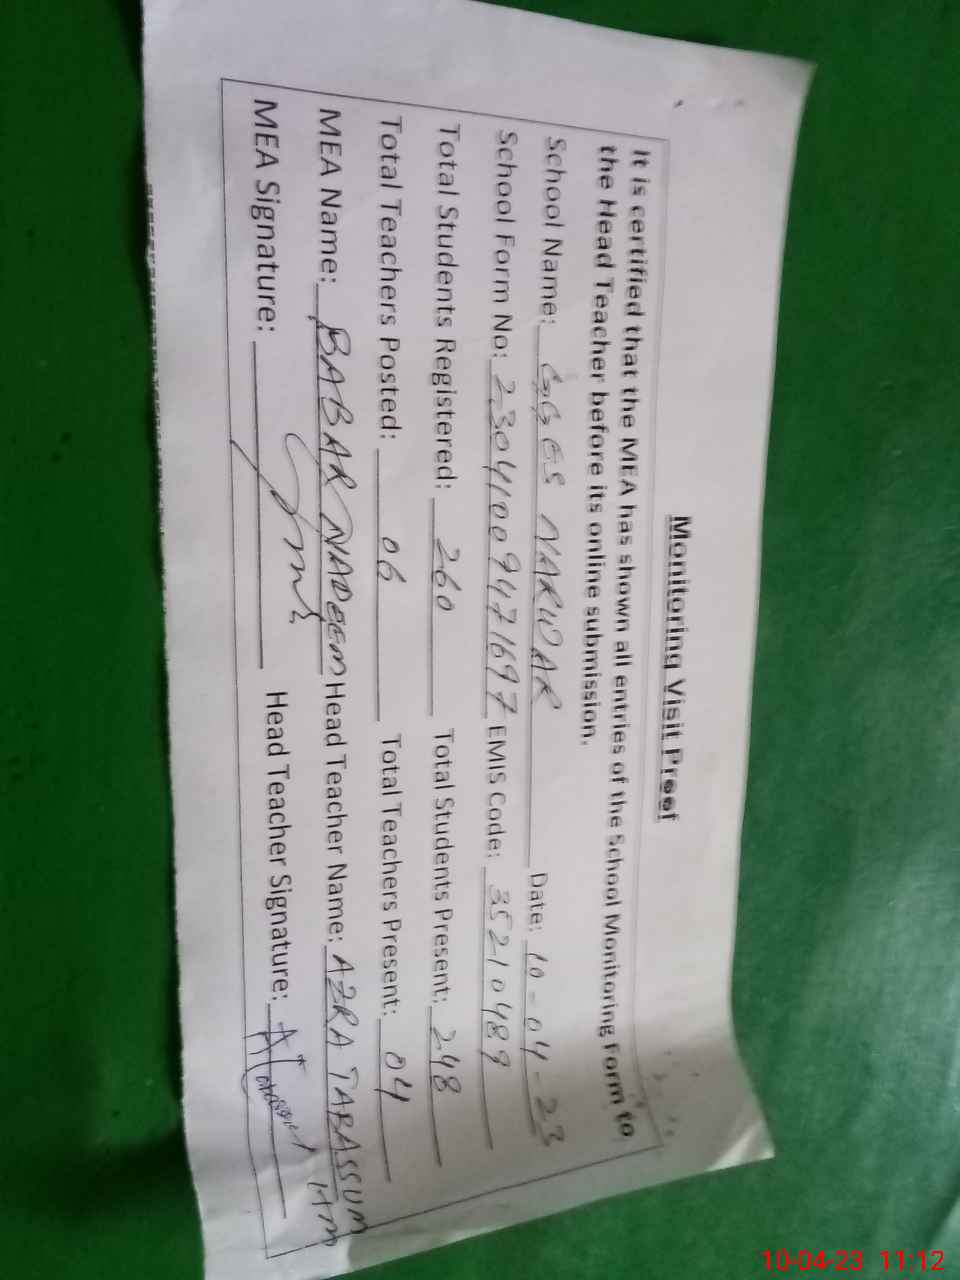 Monitoring Visit Proof
It is certified that the MEA has shown all entries of the School Monitoring Form to
the Head Teacher before its online submission.
School Name: GGES NARWAR Date: 10-04-23
School Form No: 23041009471697 EMIS Code: 35210489
Total Students Registered: 260 Total Students Present: 248
Total Teachers Posted: 06 Total Teachers Present: 04
MEA Name: BABAR NADEEM Head Teacher Name: AZRA TABASSUM
MEA Signature: Head Teacher Signature: HM
10-04-23 11:12